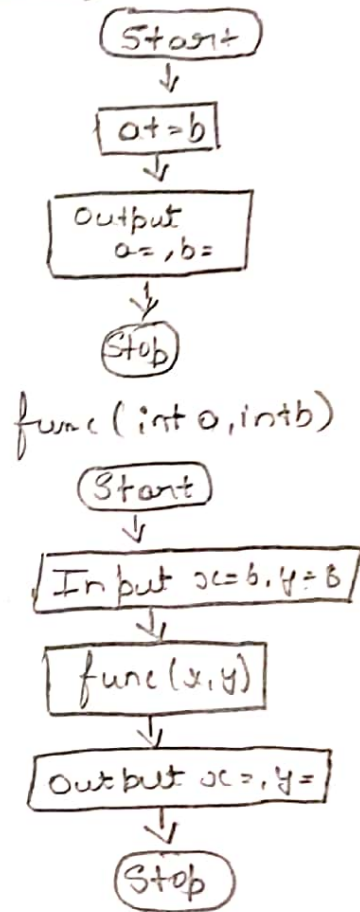 Start
a+=b
Output
a=,b=
Stop
func(int a, int b)
Start
Input x=6, y=8
func(x,y)
Output x=, y=
Stop